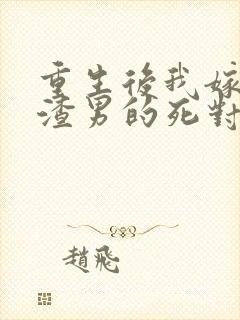 重生後我嫁
渣男的死對
趙飛